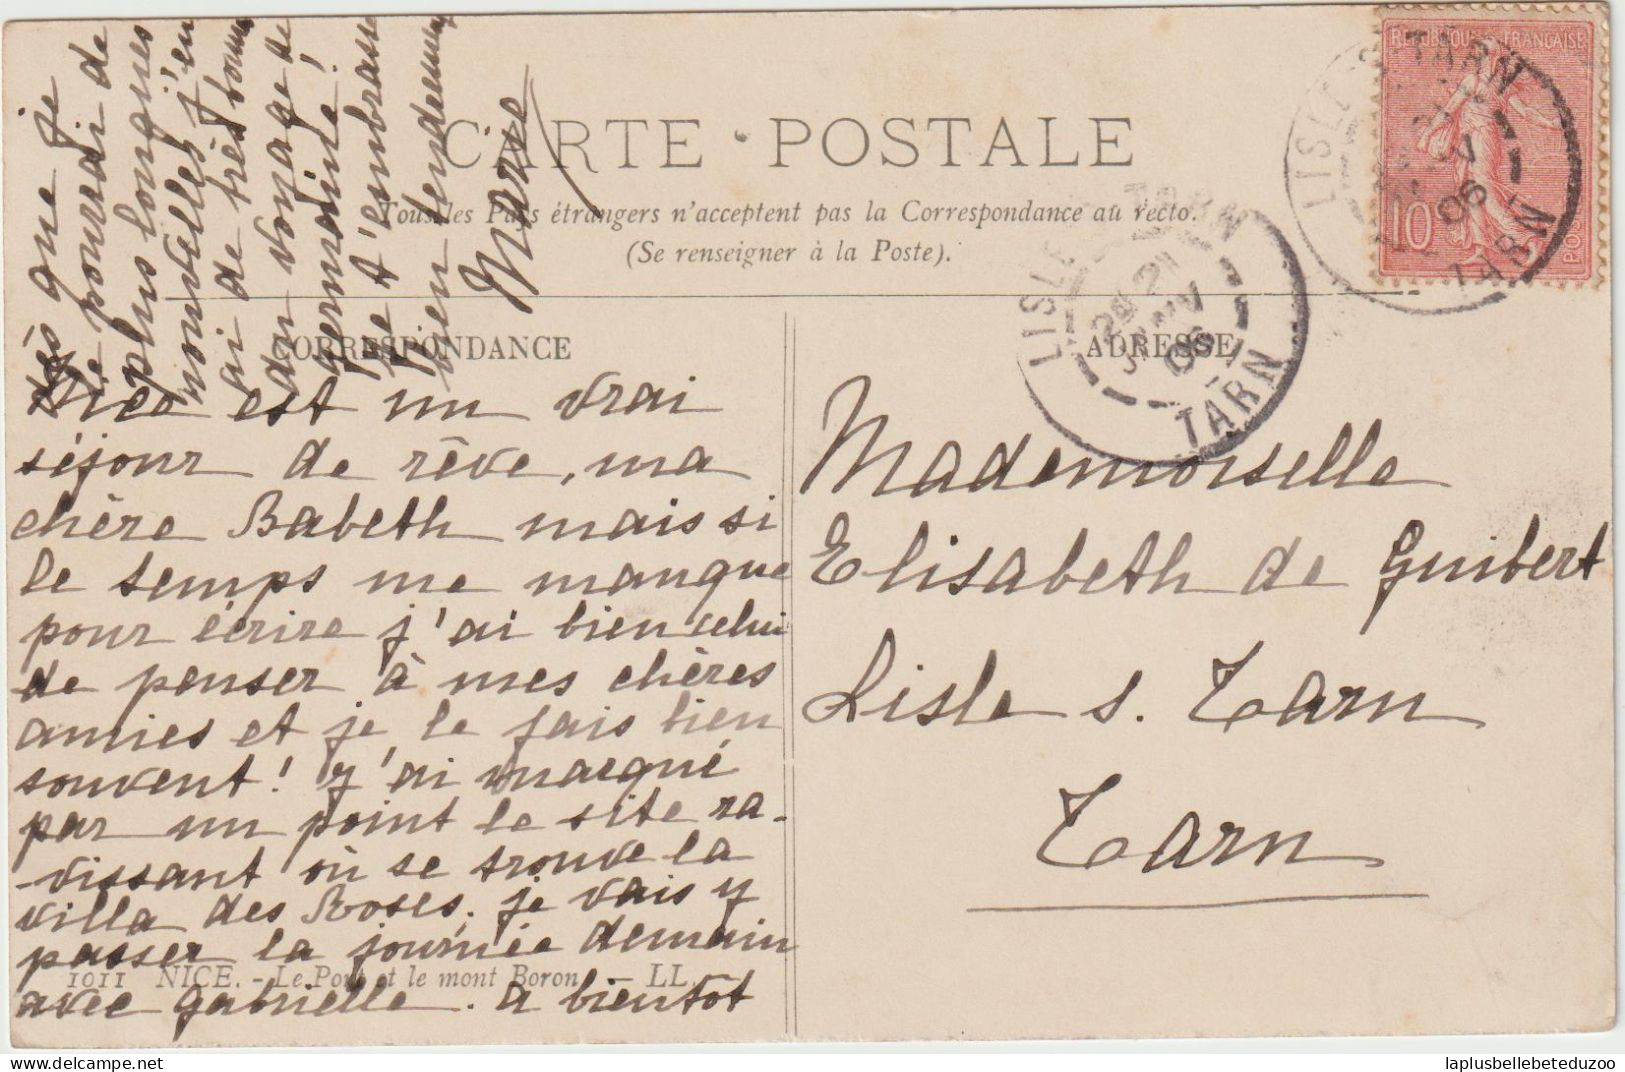 CARTE POSTALE
Tous les Pays étrangers n'acceptent pas la Correspondance au recto.
(Se renseigner à la Poste).
CORRESPONDANCE
Nice est un vrai
séjour de rêve, ma
chère Babeth mais si
le temps me manque
pour écrire j'ai bien celui
de penser à mes chères
amies et je le fais bien
souvent! J'ai marqué
par un point le site ra-
-vissant où se trouve la
villa des Roses. je vais y
passer la journée demain
avec Gabrielle. A bientôt
dès que je
le pourrai de
plus longues
nouvelles j'en
ai de très bonnes
du voyage de
germaine!
Je t'embrasse
bien tendrement
Marie
1011 NICE. - Le Port et le mont Boron - LL.
ADRESSE
Mademoiselle
Elisabeth de Guibert
Lisle s. Tarn
Tarn
REPUBLIQUE FRANÇAISE
10
LISLE S TARN
06
TARN
LISLE TARN
06
TARN
laplusbellebeteduzoo